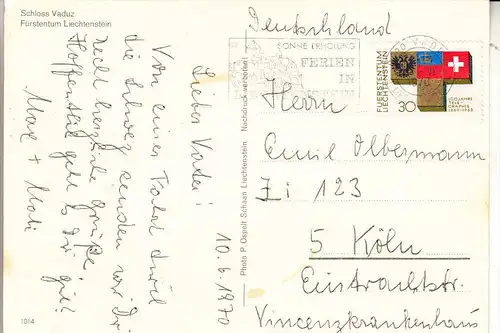 Schloss Vaduz
Fürstentum Liechtenstein
10.6.1970
Lieber Vater!
Von einer Fahrt durch
die Schweiz senden wir Dir
recht herzliche Grüße.
Hoffentlich geht es Dir gut!
Max +
1014
Photo P. Ospelt Schaan Liechtenstein Nachdruck verboten
Deutschland
SONNE ERHOLUNG
FERIEN
IN
FÜRSTENTUM
LIECHTENSTEIN
30
100 JAHRE
TELE-
GRAPHIE
1869-1969
Herrn
Emil Olbermann
Zi 123
5 Köln
Eintrachtstr.
Vincenzkrankenhaus